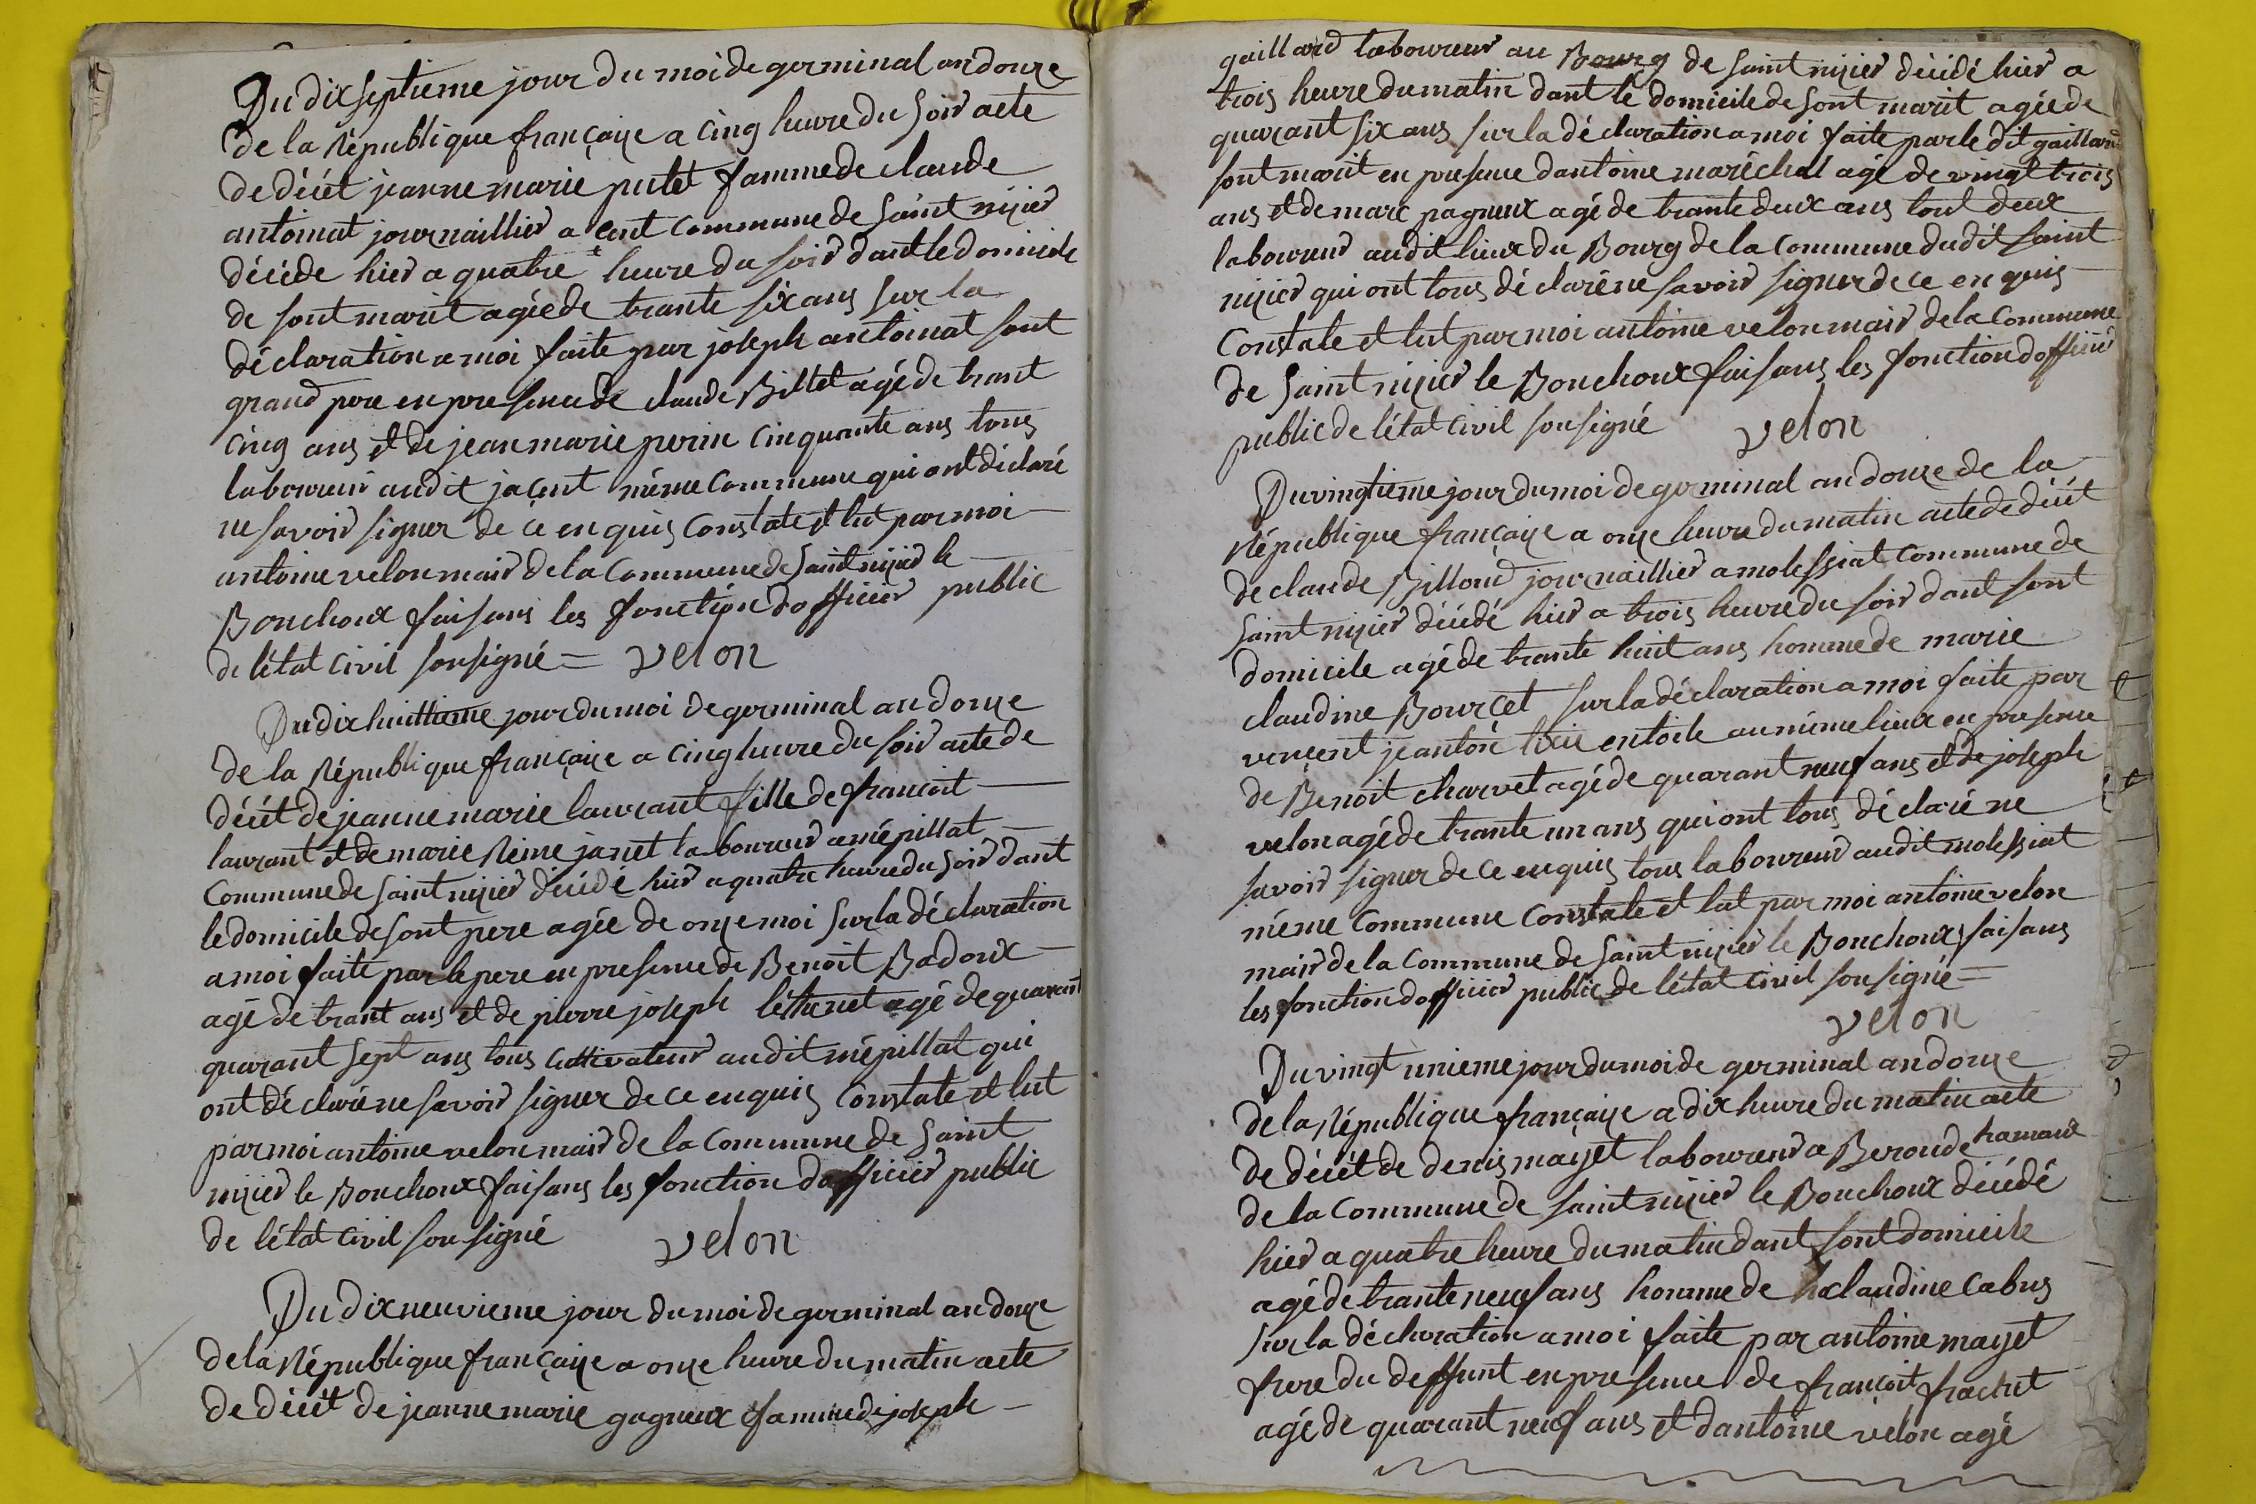 Du dix septieme jour du moi de germinal an douze
de la République françaiçe a cinq heure du soir acte
de décét jeanne marie putet famme de claude
antoinat journaillier a cent commune de saint nizier
décéde hier a quatre heure du soir dant le domicile
de sont marit agée de trante six ans sur la
déclaration a moi faite par joseph antoinat sont
grand pere en presence de claude Billet agé de trant
cinq ans et de jean marie perin cinquante ans tous
laboureur audit jacent même commune qui ont déclaré
ne savoir signer de ce enquis constate et lut par moi
antoine velon mair de la commune de saint nizier le
Bouchoux faisans les fonction dofficier public
de létat civil sousigné = velon
Du dix huittieme jour du moi de germinal an douze
de la République françaiçe a cinq heure du soir acte de
décét de jeanne marie laurant fille de francoit
laurant et de marie Reine janet laboureur a mépillat
commune de saint nizier décédé hier a quatre heure du soir dant
le domicile de sont pere agée de onze moi sur la déclaration
a moi faite par le pere en presence de Benoit Badoux
agé de trant ans et de pierre joseph agé de quarant
quarant sept ans tous cultivateur audit mépillat qui
ont déclaré ne savoir signer de ce enquis constate et lut
par moi antoine velon mair de la commune de saint
nizier le Bouchoux faisans les fonction dofficier public
de létat civil sousigné velon
Du dix neuvieme jour du moi de germinal an douze
de la République françaiçe a onze heure du matin acte
de décét de jeanne marie gagneux famme de joseph
gaillard laboureur au Bourg de saint nizier décédé hier a
trois heure du matin dant le domicile de sont marit agée de
quarant six ans sur la déclaration a moi faite par le dit gaillard
sont marit en presence dantoine maréchal agé de vingt trois
ans et de marc pagneux agé de trante deux ans tout deux
laboureur audit lieux du Bourg de la commune dudit saint
nizier qui ont tous déclaré ne savoir signer de ce enquis
Constate et lut par moi antoine velon mair de la commune
de saint nizier le Bouchoux faisans les fonction dofficier
public de létat civil sousigné velon
Du vingtieme jour du moi de germinal an douze de la
République françaiçe a onze heure du matin acte de décét
de claude Billoud journaillier a molessiat commune de
saint nizier décédé hier a trois heure du soir dant sont
domicile agé de trante huit ans homme de marie
claudine Bourcet sur la déclaration a moi faite par
vincent jeanton en toile au même lieux en presence
de Benoit charvet agé de quarant neuf ans et de joseph
velon agé de trante un ans qui ont tous déclaré ne
savoir signer de ce enquis tous laboureur audit molessiat
même commune constate et lut par moi antoine velon
mair de la commune de saint nizier le Bouchoux faisans
les fonction dofficier public de létat civil sousigné =
velon
Du vingt unieme jour du moi de germinal an douze
de la République françaiçe a dix heure du matin acte
de décét de denis mayet laboureur a Beroude hamaux
de la commune de saint nizier le Bouchoux décédé
hier a quatre heure du matin dant sont domicile
agé de trante neuf ans homme de claudine cabus
sur la déclaration a moi faite par antoine mayet
frere du deffunt en presence de francoit frachet
agé de quarant neuf ans et dantoine velon agé